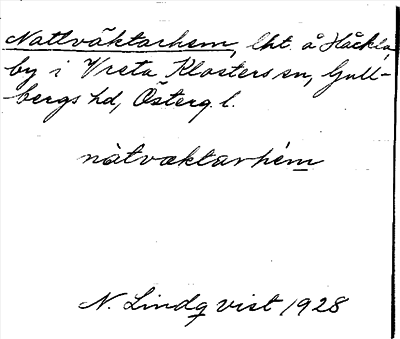 Nattväktarhem, lht. å Håckla
by i Vreta Klosters sn, Gull-
bergs hd, Österg. l.
nàtvæktarhém
N. Lindqvist 1928